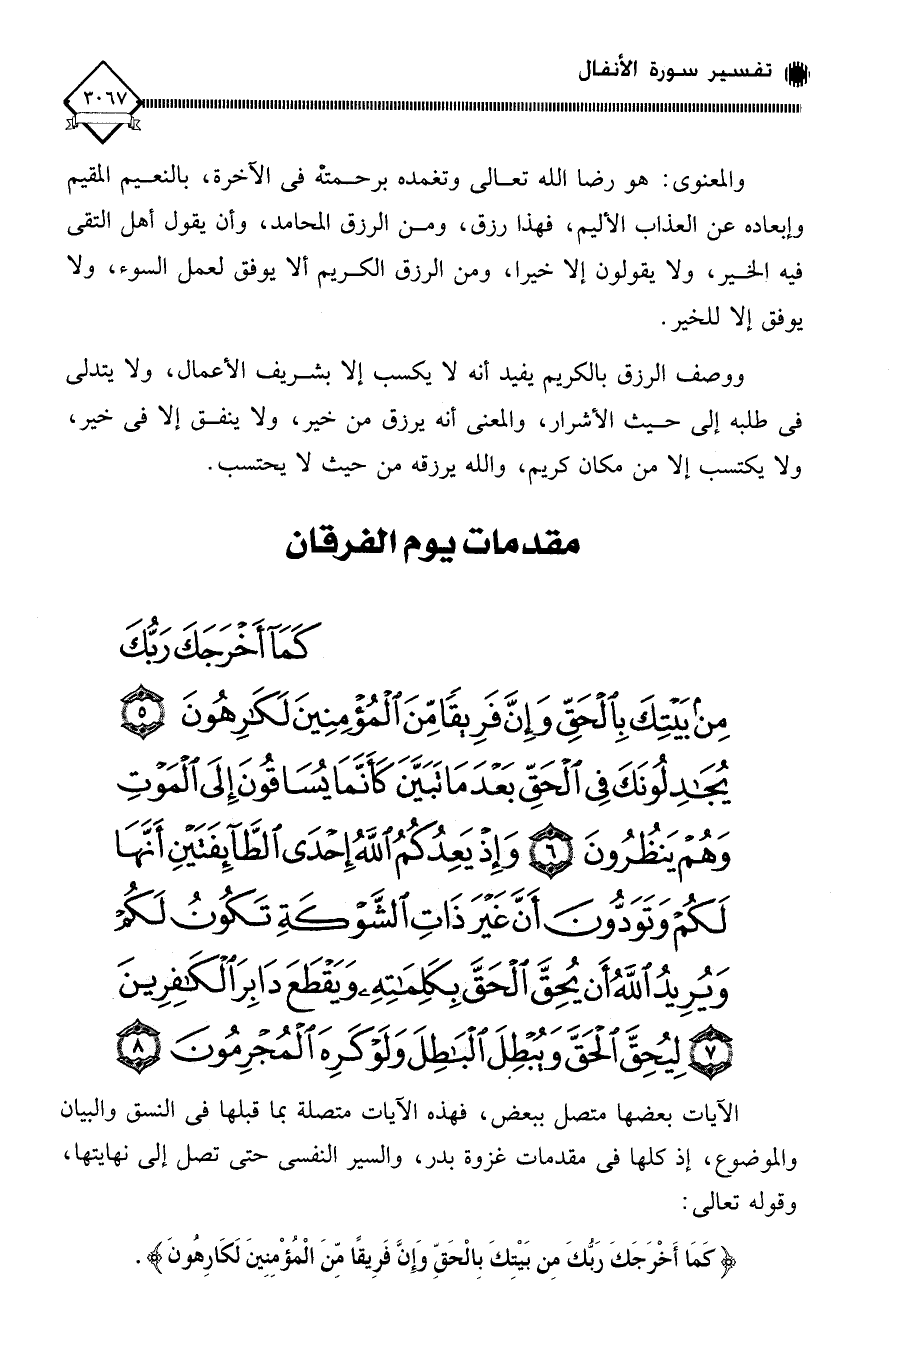 تفسير سورة الأنفال
٣٠٦٧
والمعنوى: هو رضا الله تعالى وتغمده برحمته فى الآخرة، بالنعيم المقيم
وإبعاده عن العذاب الأليم، فهذا رزق، ومن الرزق المحامد، وأن يقول أهل التقى
فيه الخير، ولا يقولون إلا خيرا، ومن الرزق الكريم ألا يوفق لعمل السوء، ولا
يوفق إلا للخير.
ووصف الرزق بالكريم يفيد أنه لا يكسب إلا بشريف الأعمال، ولا يتدلى
فى طلبه إلى حيث الأشرار، والمعنى أنه يرزق من خير، ولا ينفق إلا فى خير،
ولا يكتسب إلا من مكان كريم، والله يرزقه من حيث لا يحتسب.
مقدمات يوم الفرقان
كَمَآ أَخْرَجَكَ رَبُّكَ
مِنۢ بَيْتِكَ بِٱلْحَقِّ وَإِنَّ فَرِيقًا مِّنَ ٱلْمُؤْمِنِينَ لَكَٰرِهُونَ ٥
يُجَٰدِلُونَكَ فِى ٱلْحَقِّ بَعْدَ مَا تَبَيَّنَ كَأَنَّمَا يُسَاقُونَ إِلَى ٱلْمَوْتِ
وَهُمْ يَنظُرُونَ ٦ وَإِذْ يَعِدُكُمُ ٱللَّهُ إِحْدَى ٱلطَّآئِفَتَيْنِ أَنَّهَا
لَكُمْ وَتَوَدُّونَ أَنَّ غَيْرَ ذَاتِ ٱلشَّوْكَةِ تَكُونُ لَكُمْ
وَيُرِيدُ ٱللَّهُ أَن يُحِقَّ ٱلْحَقَّ بِكَلِمَٰتِهِۦ وَيَقْطَعَ دَابِرَ ٱلْكَٰفِرِينَ
٧ لِيُحِقَّ ٱلْحَقَّ وَيُبْطِلَ ٱلْبَٰطِلَ وَلَوْ كَرِهَ ٱلْمُجْرِمُونَ ٨
الآيات بعضها متصل ببعض، فهذه الآيات متصلة بما قبلها فى النسق والبيان
والموضوع، إذ كلها فى مقدمات غزوة بدر، والسير النفسى حتى تصل إلى نهايتها،
وقوله تعالى:
﴿كَمَا أَخْرَجَكَ رَبُّكَ مِن بَيْتِكَ بِالْحَقِّ وَإِنَّ فَرِيقًا مِّنَ الْمُؤْمِنِينَ لَكَارِهُونَ﴾.